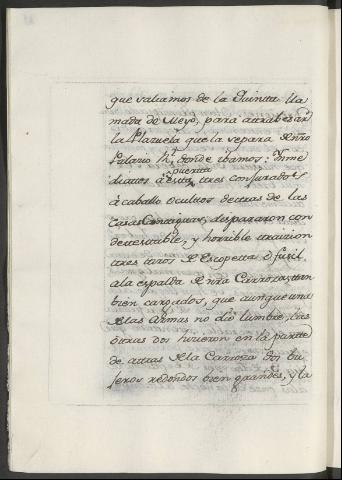 que saliamos de la Quinta lla
mada de Meyo, para atrabesar
la Plazuela que la separa de nro
Palacio R.l donde ibamos: Inme
diatos à esta puerta tres conjurados
à caballo ocultos detras de las
Casas Contiguas, dispararon con
detestable, y horrible traicion
tres tiros de Escopeta ò fusil
a la espalda de nra Carroza, tan
bien cargados, que aunque una
de las Armas no diò lumbre, las
otras dos hicieron en la parte
de atras de la Carroza dos bu
jeros redondos bien grandes, y la